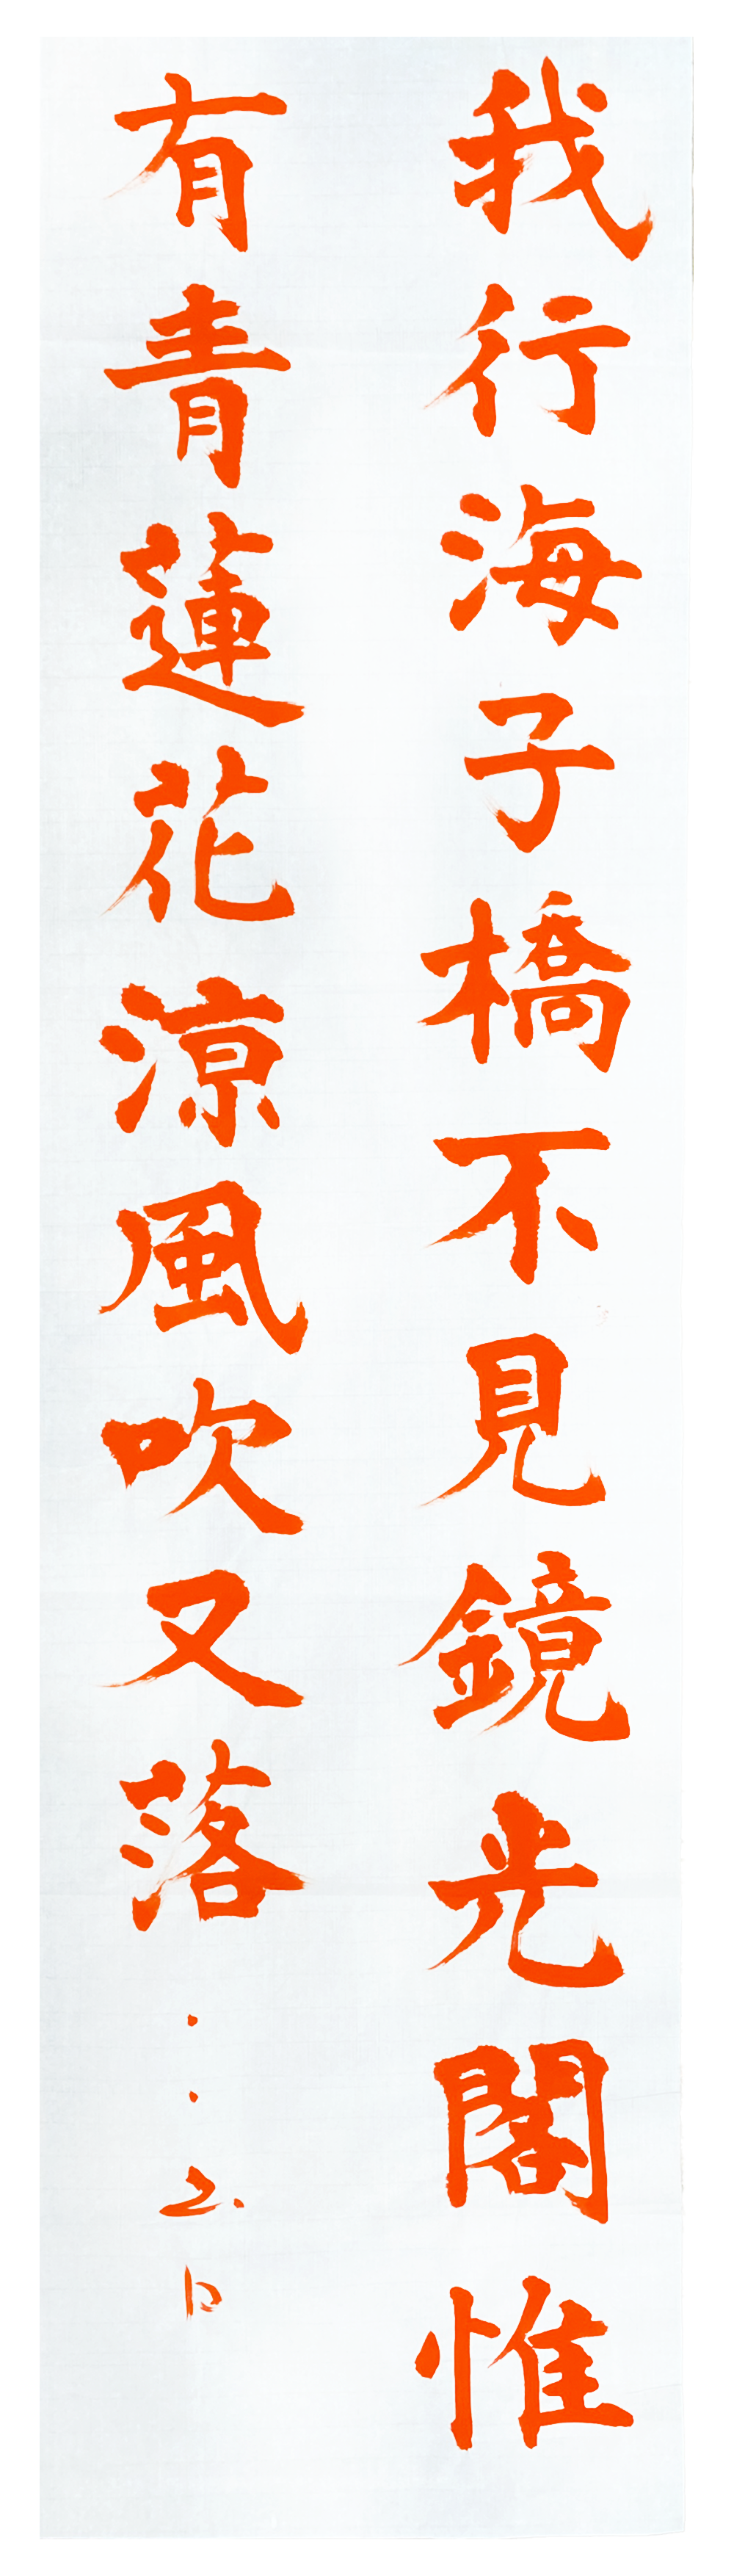 我行海子橋不見鏡光閣惟
有青蓮花涼風吹又落